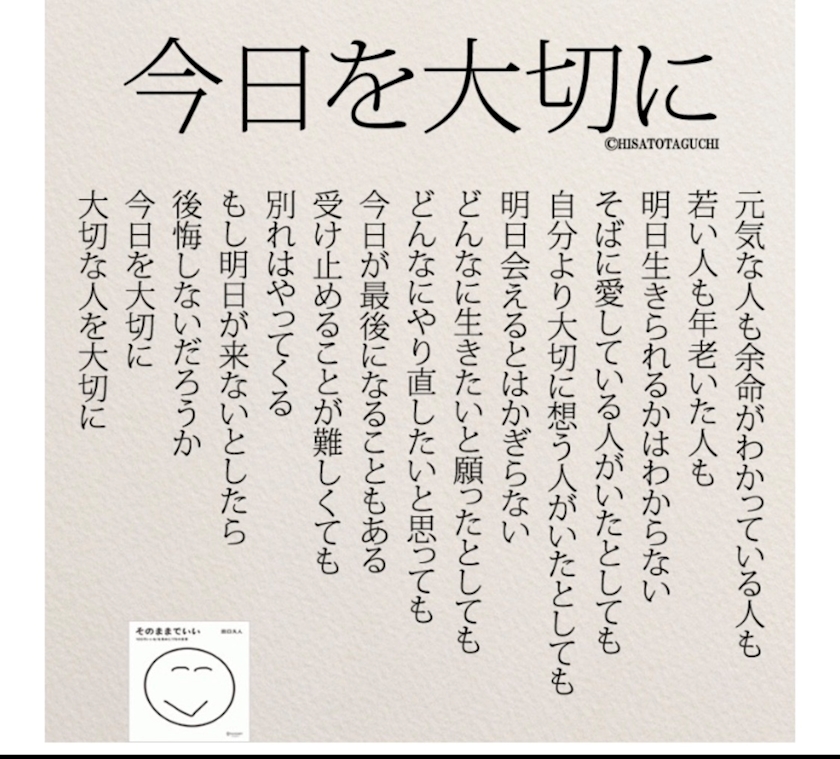 今日を大切に
©HISATOTAGUCHI
元気な人も余命がわかっている人も
若い人も年老いた人も
明日生きられるかはわからない
そばに愛している人がいたとしても
自分より大切に想う人がいたとしても
明日会えるとはかぎらない
どんなに生きたいと願ったとしても
どんなにやり直したいと思っても
今日が最後になることもある
受け止めることが難しくても
別れはやってくる
もし明日が来ないとしたら
後悔しないだろうか
今日を大切に
大切な人を大切に
そのままでいい
田口久人